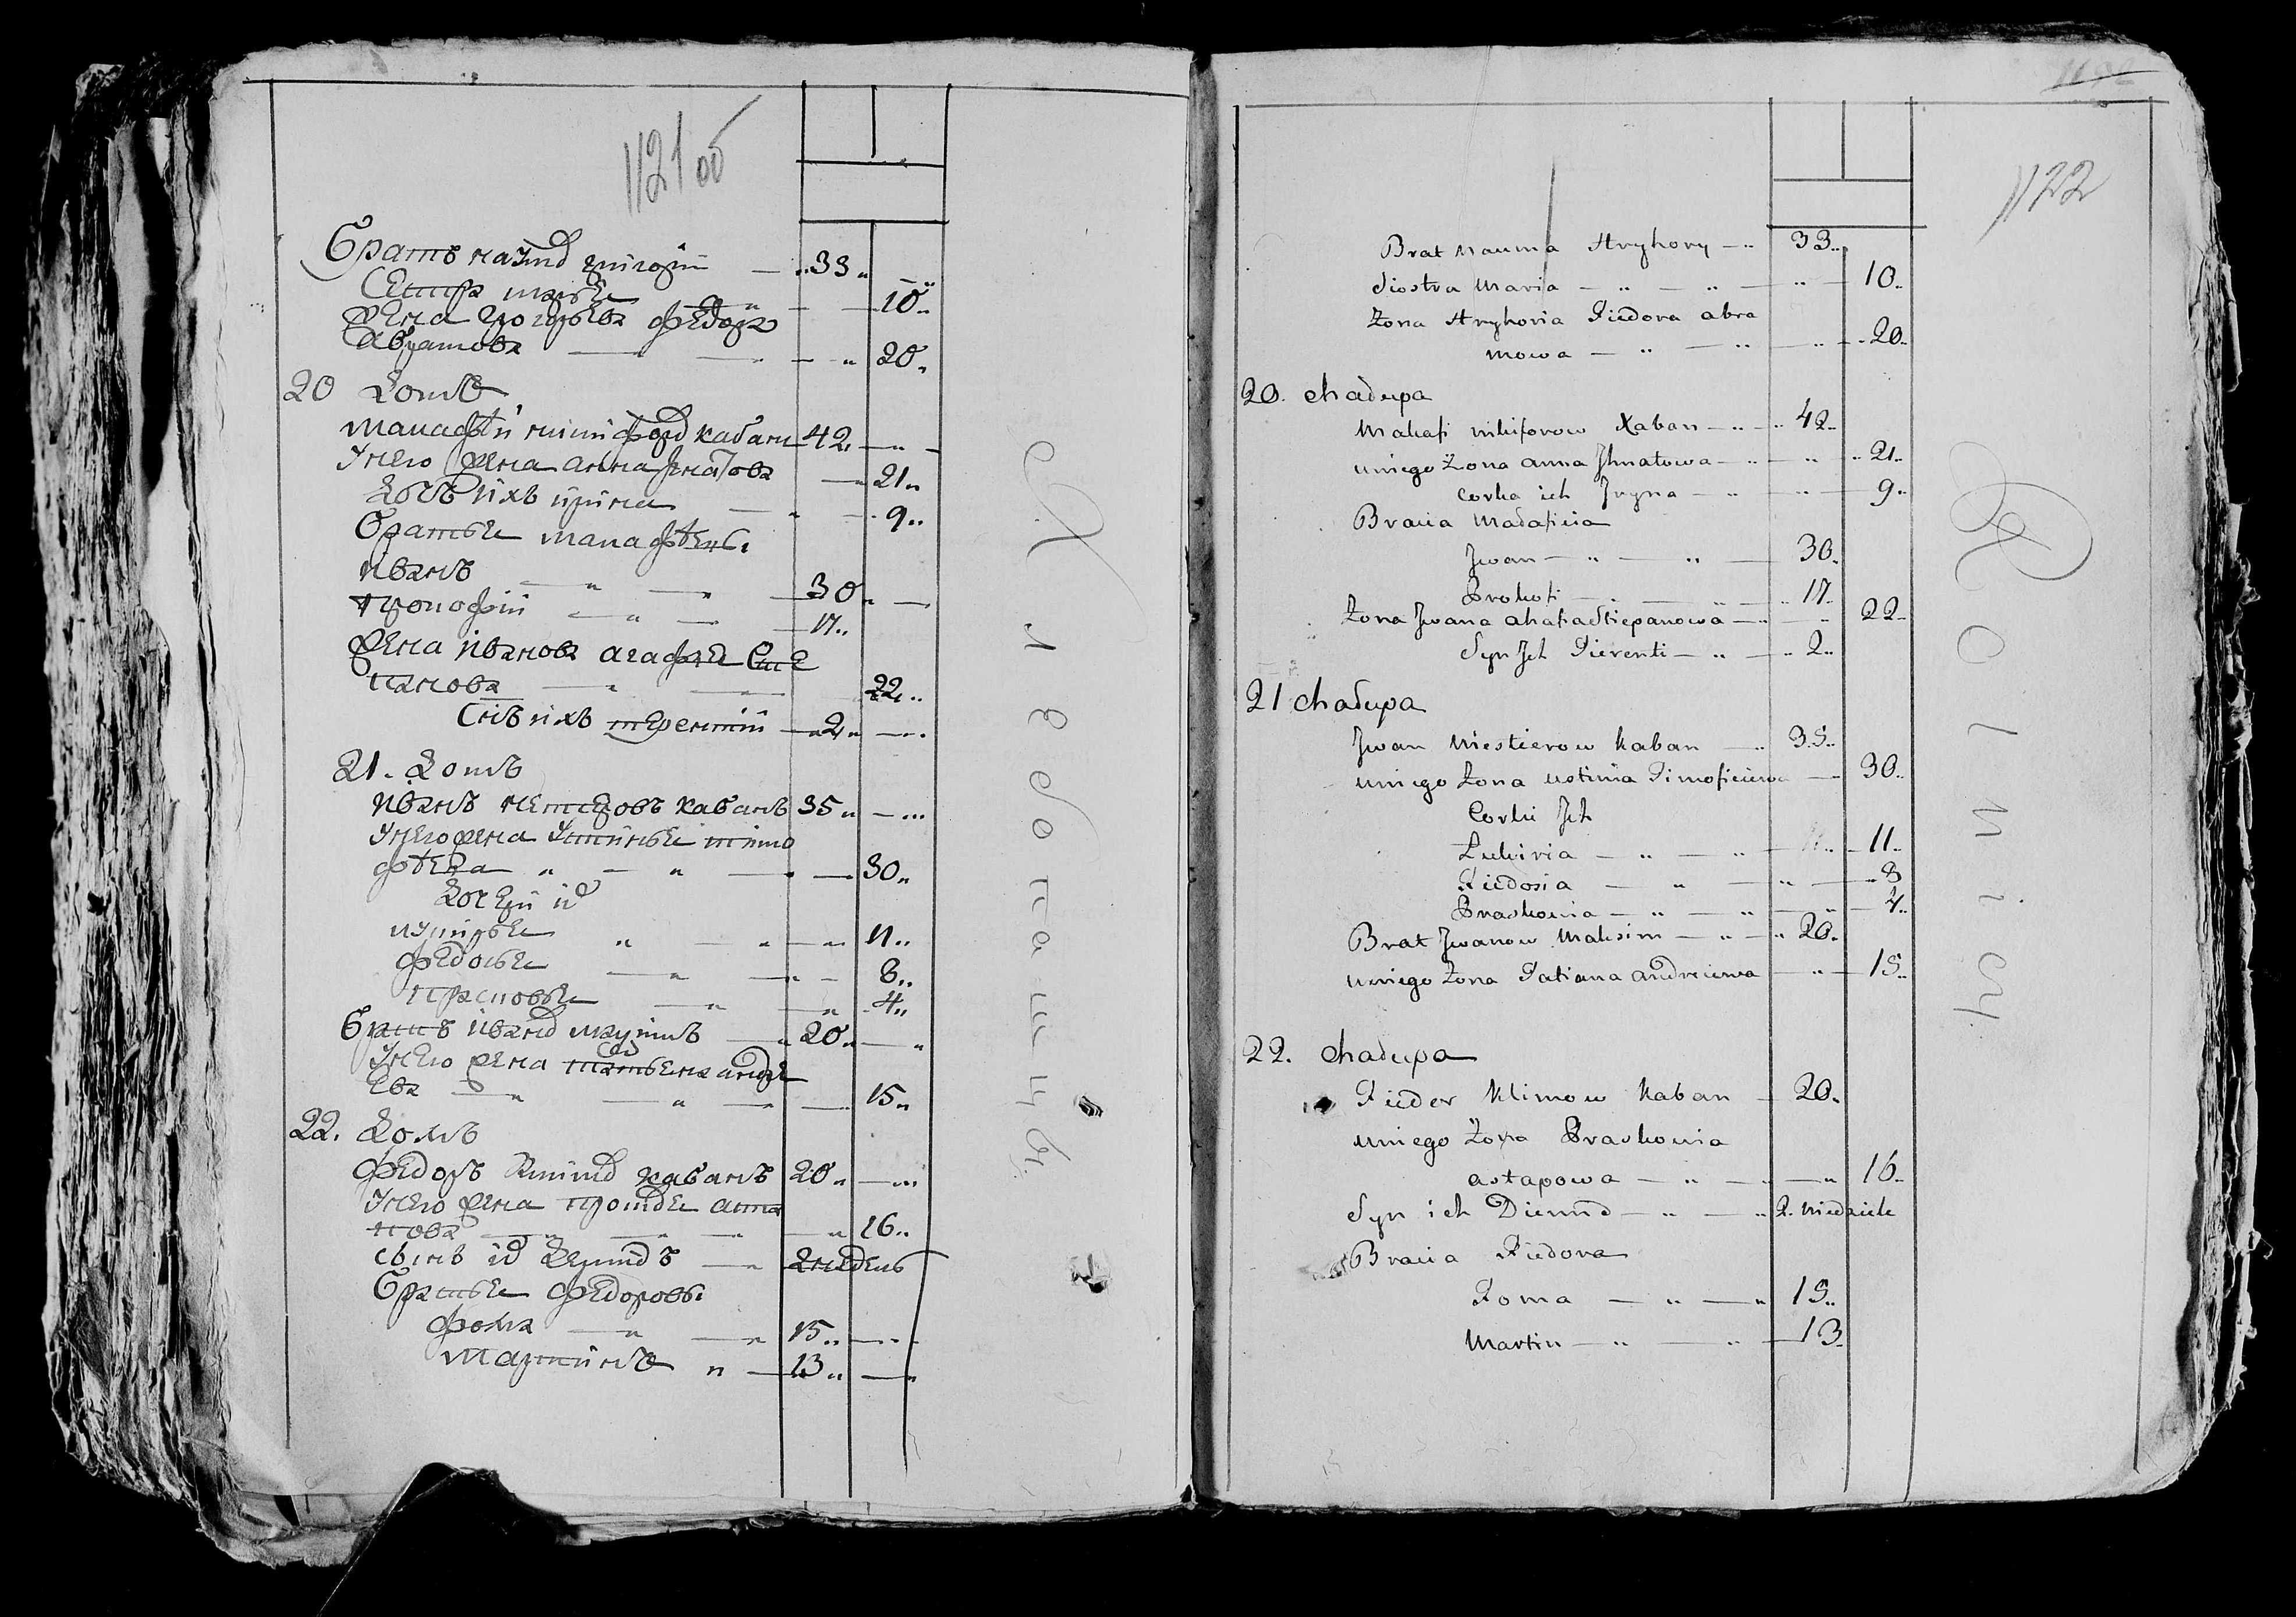 1121 об
Братъ наумд григорiи — „ 33 „
Сестра марья — „ — 10 „
жена григорьева федора
Абрамова — „ — „ 20 „
20 Домъ
Макафѣй никифорд кабанъ 42 „ — „
У него жена анна Игнатова — 21 „
Дочь ихъ ирина — „ — 9 „
Братья макафѣевы
иванъ — „ — „ — 30 „ —
прокофiй — „ — „ — 17 „
жена иванова агафья Сте
панова — „ — 22 „
Снъ ихъ терентiй — „ 2 „ — „
21. Домъ
иванъ нестеровъ кабанъ 35 „ — „
У него жена Устинья тимо
фѣева „ — „ — 30 „
Дочери их
лукирья „ — „ — „ 11 „
федосья — „ — „ — 8 „
прасковья — „ — „ 4 „
Братъ иванд максимъ — „ 20 „ — „
У него жена татьяна андре
ева — „ — „ — 15 „
22. Домъ
федоръ климд кабанъ 20 „ — „
У него жена прасковья аста
пова — „ — „ 16 „
сынъ их Демидъ — „ 2 недели
Братья федоровы
фома — „ — „ 15 „ — „
мартинъ „ — 13 „ — „
Хлебопашцы
1122
Brat nauma Hryhory — „ 33 „
Siostra Maria — „ — „ — „ — 10 „
Żona Hryhoria Fiedora abra
mowa — „ — „ — „ — 20 „
20. chałupa
Makafi nikiforow Kaban — „ — „ 42 „
uniego Żona anna Jhnatowa — „ — „ 21 „
Corka ich Jryna — „ — „ — 9 „
Bracia Makafieia
Jwan — „ — „ — 30 „
Prokofi — „ — „ 17 „
Żona Jwana ahafia Stiepanowa — „ 22 „
Syn Jch Tierenti — „ — „ 2 „
21 chałupa
Jwan Niestierow Kaban — „ 35 „
uniego Żona ustinia Timofieiewa — 30 „
Corki Jch
Lukiria — „ — „ — 11 „
Fiedosia — „ — „ — „ 8
Praskowia — „ — „ — „ — 4 „
Brat Jwanow Maksim — „ — „ 20 „
uniego Żona Tatiana andreiewa — „ — 15 „
22. chałupa
Fieder Klimow Kaban — 20 „
uniego Żona Praskowia
astapowa — „ — „ — „ 16 „
Syn ich Diemid — „ — „ 2 niedziele
Bracia Fiedora
Foma — „ — „ 15 „
Martin — „ — „ — 13 „
Rolnicy